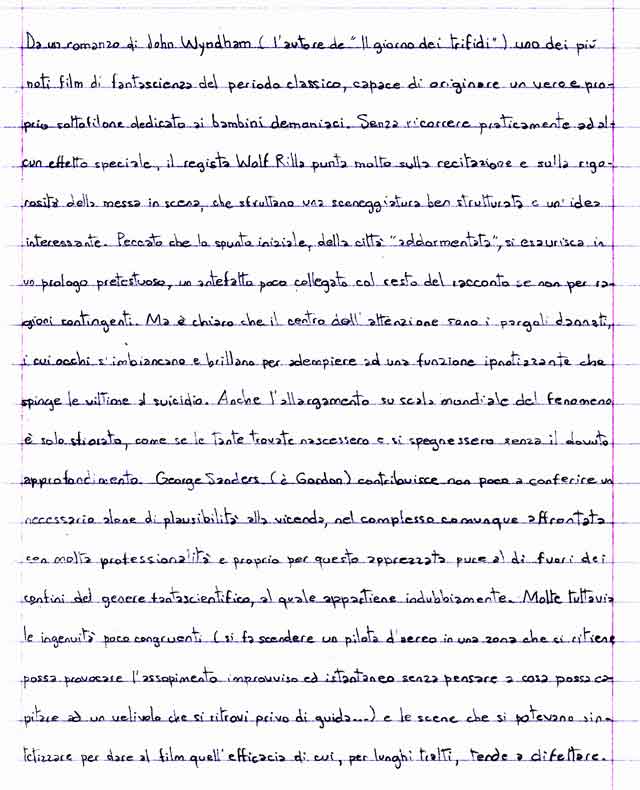 Da un romanzo di John Wyndham (l'autore de "Il giorno dei trifidi") uno dei più
noti film di fantascienza del periodo classico, capace di originare un vero e pro-
prio sottofilone dedicato ai bambini demoniaci. Senza ricorrere praticamente ad al-
cun effetto speciale, il regista Wolf Rilla punta molto sulla recitazione e sulla rigo-
rosità della messa in scena, che sfruttano una sceneggiatura ben strutturata e un'idea
interessante. Peccato che lo spunto iniziale, della città "addormentata", si esaurisca in
un prologo pretestuoso, un antefatto poco collegato col resto del racconto se non per ra-
gioni contingenti. Ma è chiaro che il centro dell'attenzione sono i pargoli dannati,
i cui occhi s'imbiancano e brillano per adempiere ad una funzione ipnotizzante che
spinge le vittime al suicidio. Anche l'allargamento su scala mondiale del fenomeno
è solo sfiorato, come se le tante trovate nascessero e si spegnessero senza il dovuto
approfondimento. George Sanders (è Gordon) contribuisce non poco a conferire un
necessario alone di plausibilità alla vicenda, nel complesso comunque affrontata
con molta professionalità e proprio per questo apprezzata pure al di fuori dei
confini del genere fantascientifico, al quale appartiene indubbiamente. Molte tuttavia
le ingenuità poco congruenti (si fa scendere un pilota d'aereo in una zona che si ritiene
possa provocare l'assopimento improvviso ed istantaneo senza pensare a cosa possa ca-
pitare ad un velivolo che si ritrovi privo di guida...) e le scene che si potevano sin-
tetizzare per dare al film quell'efficacia di cui, per lunghi tratti, tende a difettare.